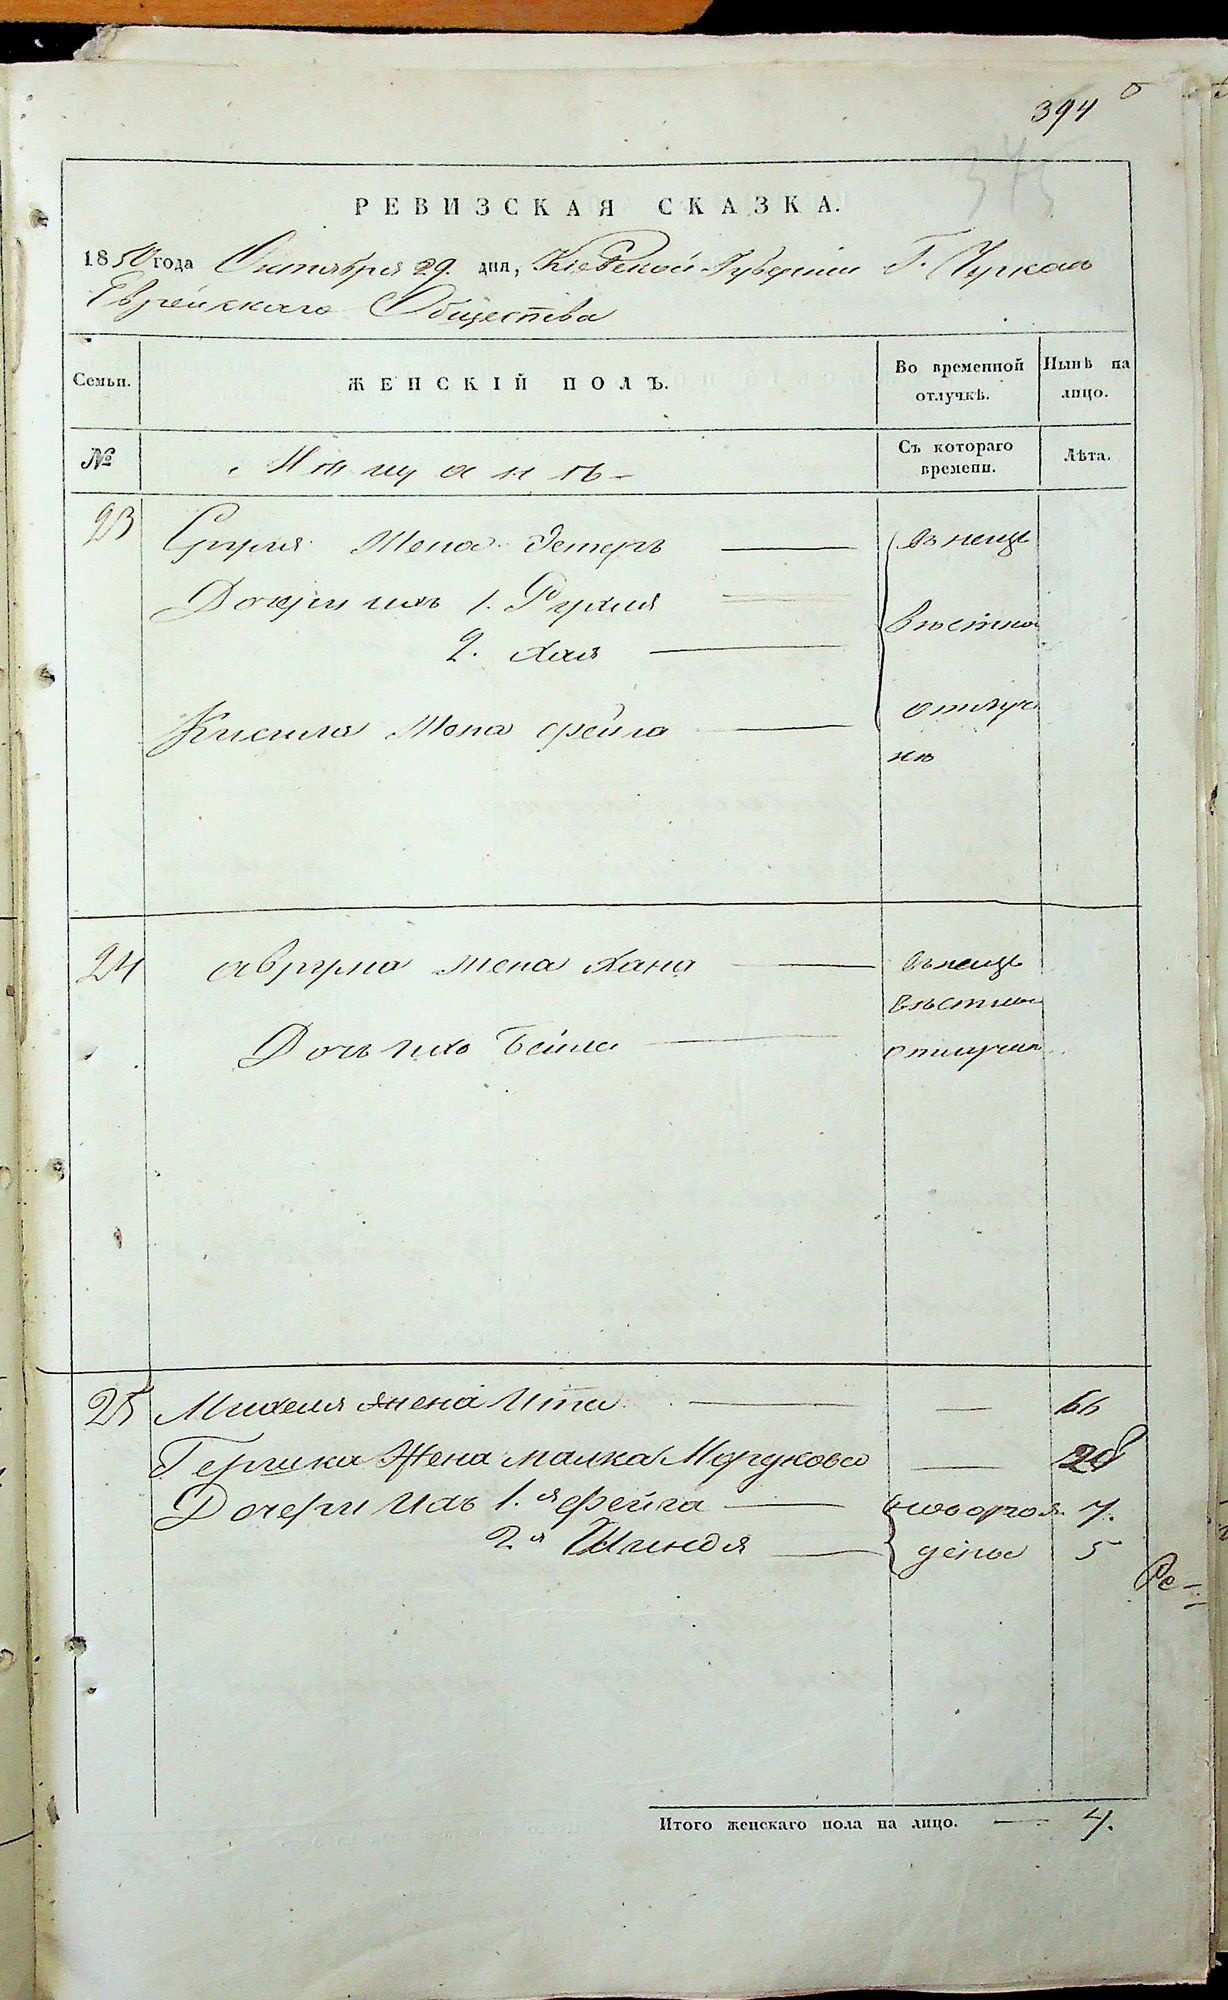 394
375
РЕВИЗСКАЯ СКАЗКА.
1850 года Октября 29. дня, Кіевской Губерніи Г. Черкас
Еврейскаго Общества
Семьи. ЖЕНСКІЙ ПОЛЪ. Во временной отлучкѣ. Нынѣ на лицо.
№ Мѣщанъ Съ котораго времени. Лѣта.
23 Сруля Жена Эстеръ — въ неиз
Дочери ихъ 1. Рухля — вѣстно
2. Хая —
Жена Фейга — отлуч
ке
24 Аврума жена Хана — въ неиз
вѣстно
Дочь ихъ Бейла — отлучки
25 Михеля жена Ита — — 66
Гершка Жена Малка — 28
Дочери Ихъ 1.я Фейга — новорож 7.
2я Шиндля — дены 5
Ре-
Итого женскаго пола на лицо. — 4.